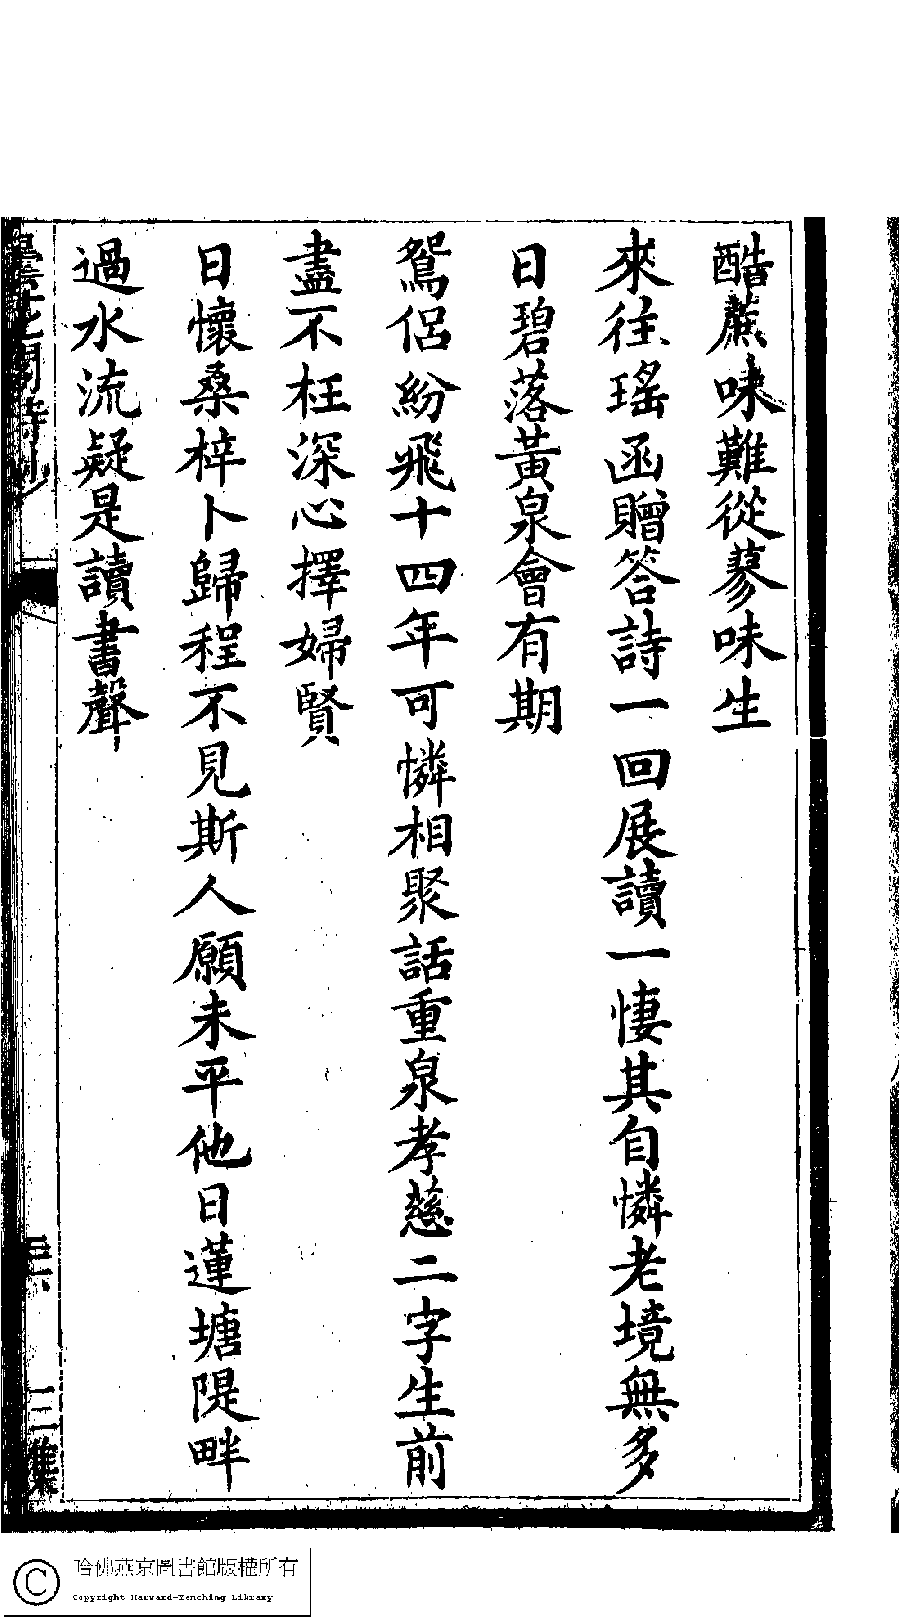 酷蔗味難從蓼味生
來往瑤函贈答詩一回展讀一悽其自憐老境無多
日碧落黃泉會有期
鴛侶紛飛十四年可憐相聚話重泉孝慈二字生前
盡不枉深心擇婦賢
日懷桑梓卜歸程不見斯人願未平他日蓮塘隄畔
過水流疑是讀書聲
花閣詩鈔
三集
哈佛燕京圖書館版權所有
Copyright Harvard-Yenching Library